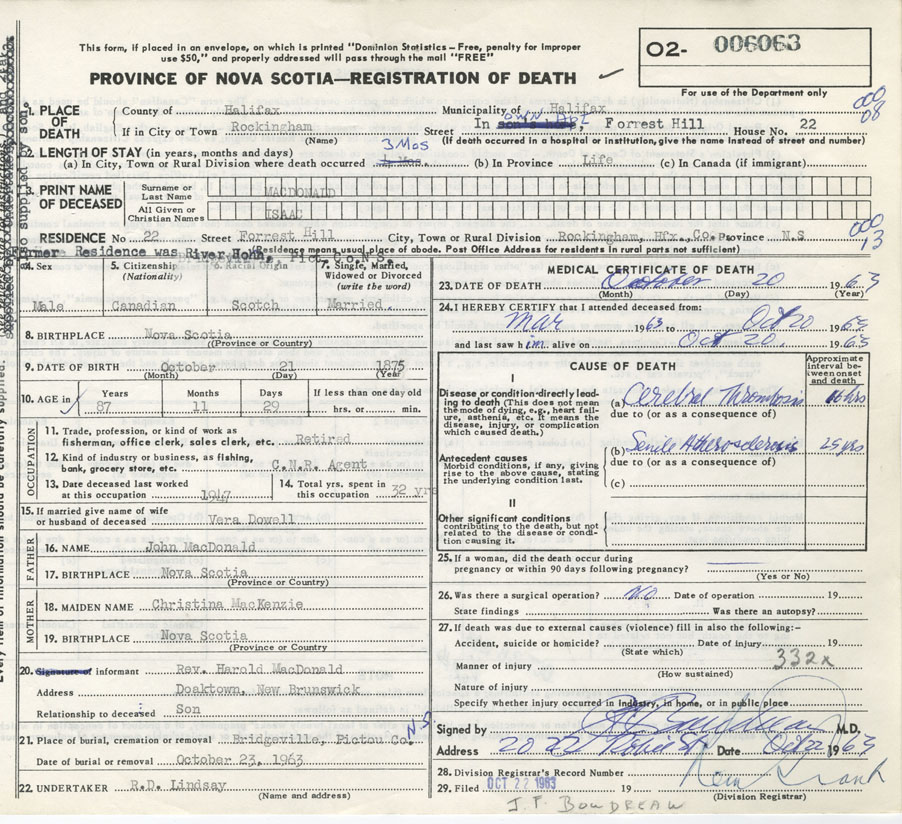 This form, if placed in an envelope, on which is printed "Dominion Statistics - Free, penalty for improper
use $50," and properly addressed will pass through the mail "FREE"
PROVINCE OF NOVA SCOTIA—REGISTRATION OF DEATH
O2- 006063
For use of the Department only
000
08
1. PLACE OF DEATH
County of Halifax
Municipality of Halifax
If in City or Town Rockingham
(Name)
Street In son's home, own Apt Forrest Hill House No. 22
(If death occurred in a hospital or institution, give the name instead of street and number)
2. LENGTH OF STAY (in years, months and days)
3 Mos
(a) In City, Town or Rural Division where death occurred
(b) In Province Life
(c) In Canada (if immigrant)
3. PRINT NAME OF DECEASED
Surname or Last Name MACDONALD
All Given or Christian Names ISAAC
000
13
RESIDENCE No 22 Street Forrest Hill City, Town or Rural Division Rockingham, Hfx. Co. Province N.S
(Residence means usual place of abode. Post Office Address for residents in rural parts not sufficient)
Former Residence was River
4. Sex Male
5. Citizenship (Nationality) Canadian
6. Racial Origin Scotch
7. Single, Married, Widowed or Divorced (write the word) Married.
8. BIRTHPLACE Nova Scotia
(Province or Country)
9. DATE OF BIRTH October 21 1875
(Month) (Day) (Year)
10. AGE in
Years 87
Months 11
Days 29
If less than one day old
hrs. or min.
OCCUPATION
11. Trade, profession, or kind of work as fisherman, office clerk, sales clerk, etc. Retired
12. Kind of industry or business, as fishing, bank, grocery store, etc. C.N.R. Agent
13. Date deceased last worked at this occupation 1947
14. Total yrs. spent in this occupation 32 yrs
15. If married give name of wife or husband of deceased Vera Dowell
FATHER
16. NAME John MacDonald
17. BIRTHPLACE Nova Scotia
(Province or Country)
MOTHER
18. MAIDEN NAME Christina MacKenzie
19. BIRTHPLACE Nova Scotia
(Province or Country)
20. Signature of informant Rev. Harold MacDonald
Address Doaktown, New Brunswick
Relationship to deceased Son
21. Place of burial, cremation or removal Bridgeville, Pictou Co. N S
Date of burial or removal October 23, 1963
22. UNDERTAKER R.D. Lindsay
(Name and address)
MEDICAL CERTIFICATE OF DEATH
23. DATE OF DEATH October 20 1963
(Month) (Day) (Year)
24. I HEREBY CERTIFY that I attended deceased from:
Mar 1963 to Oct 20 1963
and last saw him alive on Oct 20, 1963
CAUSE OF DEATH
Approximate interval between onset and death
I
Disease or condition directly leading to death (This does not mean the mode of dying, e.g., heart failure, asthenia, etc. It means the disease, injury, or complication which caused death.)
(a) Cerebral Thrombosis 16 hrs
due to (or as a consequence of)
(b) Senile Atherosclerosis 25 yrs
due to (or as a consequence of)
(c)
Antecedent causes
Morbid conditions, if any, giving rise to the above cause, stating the underlying condition last.
II
Other significant conditions
contributing to the death, but not related to the disease or condition causing it.
25. If a woman, did the death occur during pregnancy or within 90 days following pregnancy?
(Yes or No)
26. Was there a surgical operation? No Date of operation 19
State findings Was there an autopsy?
27. If death was due to external causes (violence) fill in also the following:—
Accident, suicide or homicide? Date of injury 19
(State which)
332x
Manner of injury
(How sustained)
Nature of injury
Specify whether injury occurred in Industry, in home, or in public place
Signed by M.D.
Address Date Oct 22 1963
28. Division Registrar's Record Number
29. Filed OCT 22 1963 19
(Division Registrar)
J.F. BOUDREAU